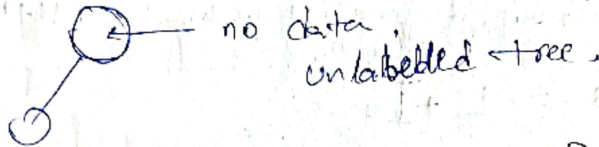 no data.
unlabelled tree.